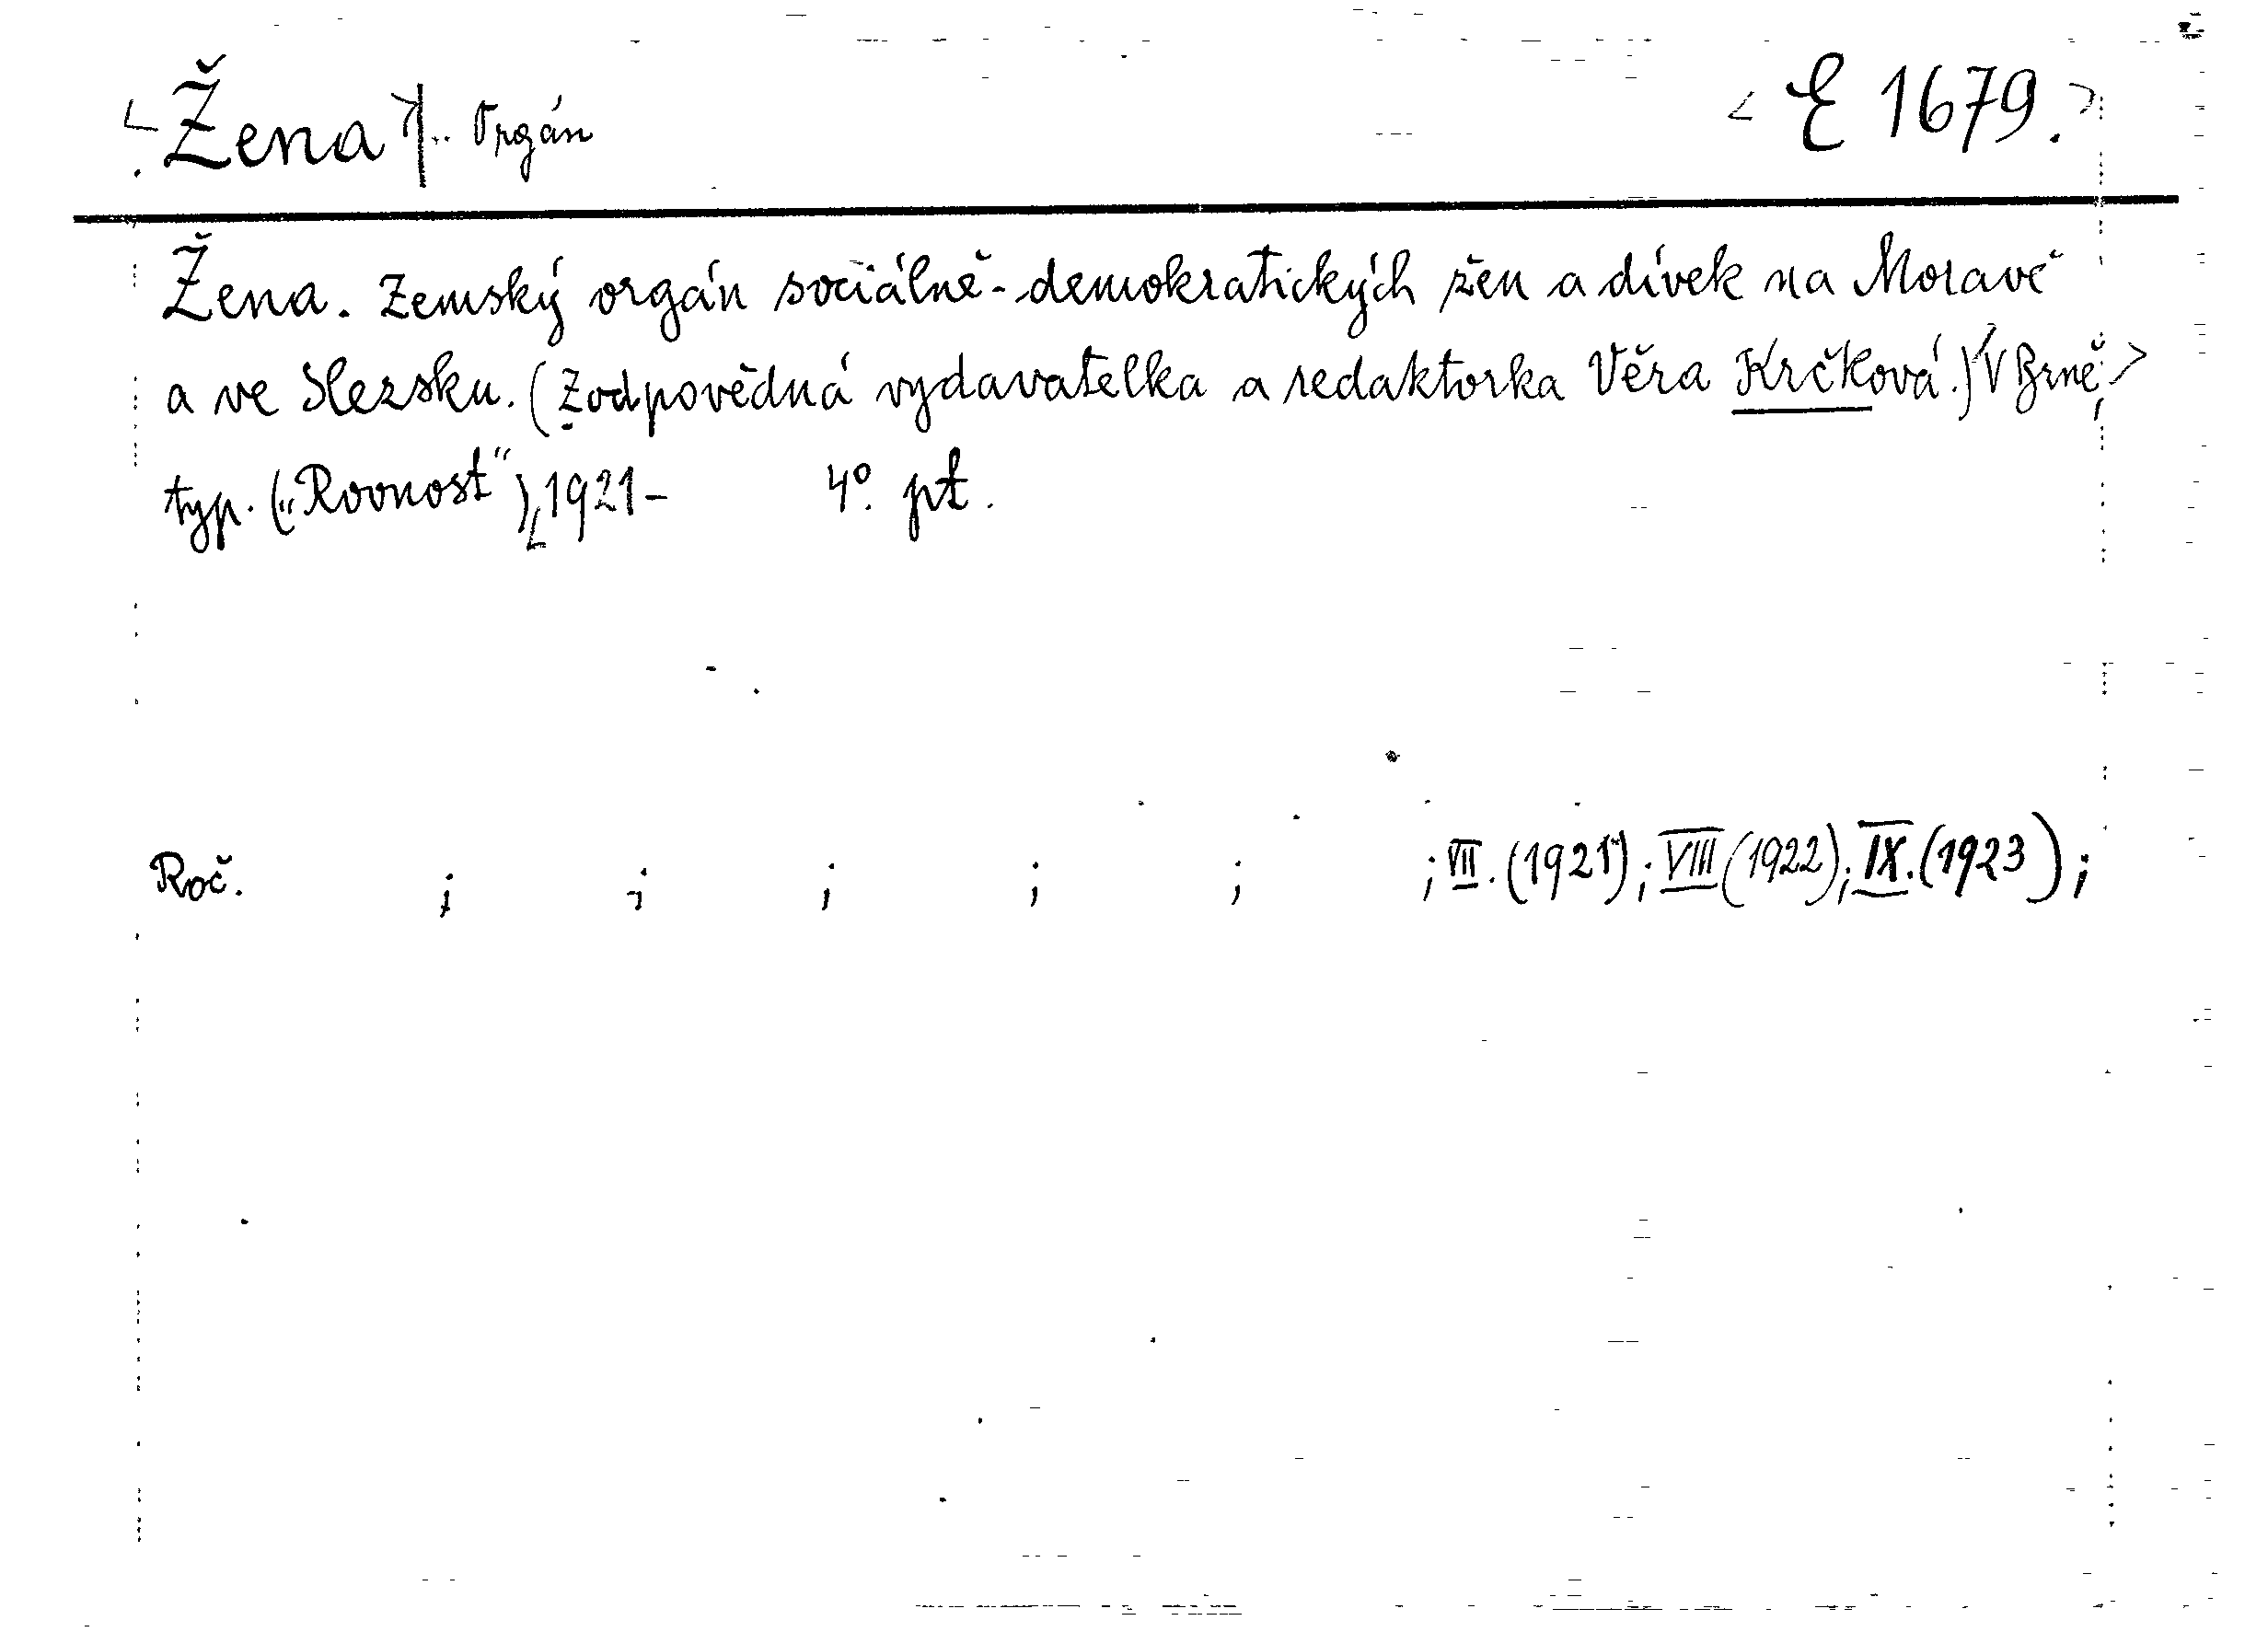 <Žena>|.. Orgán <E 1679.>
Žena. Zemský orgán sociálně-demokratických žen a dívek na Moravě
a ve Slezsku. (Zodpovědná vydavatelka a redaktorka Věra Krčková.) V Brně,>
typ. („Rovnost"), 1921- 4°. pt.
Roč. ; ; ; ; ; ; VII. (1921); VIII (1922); IX. (1923);